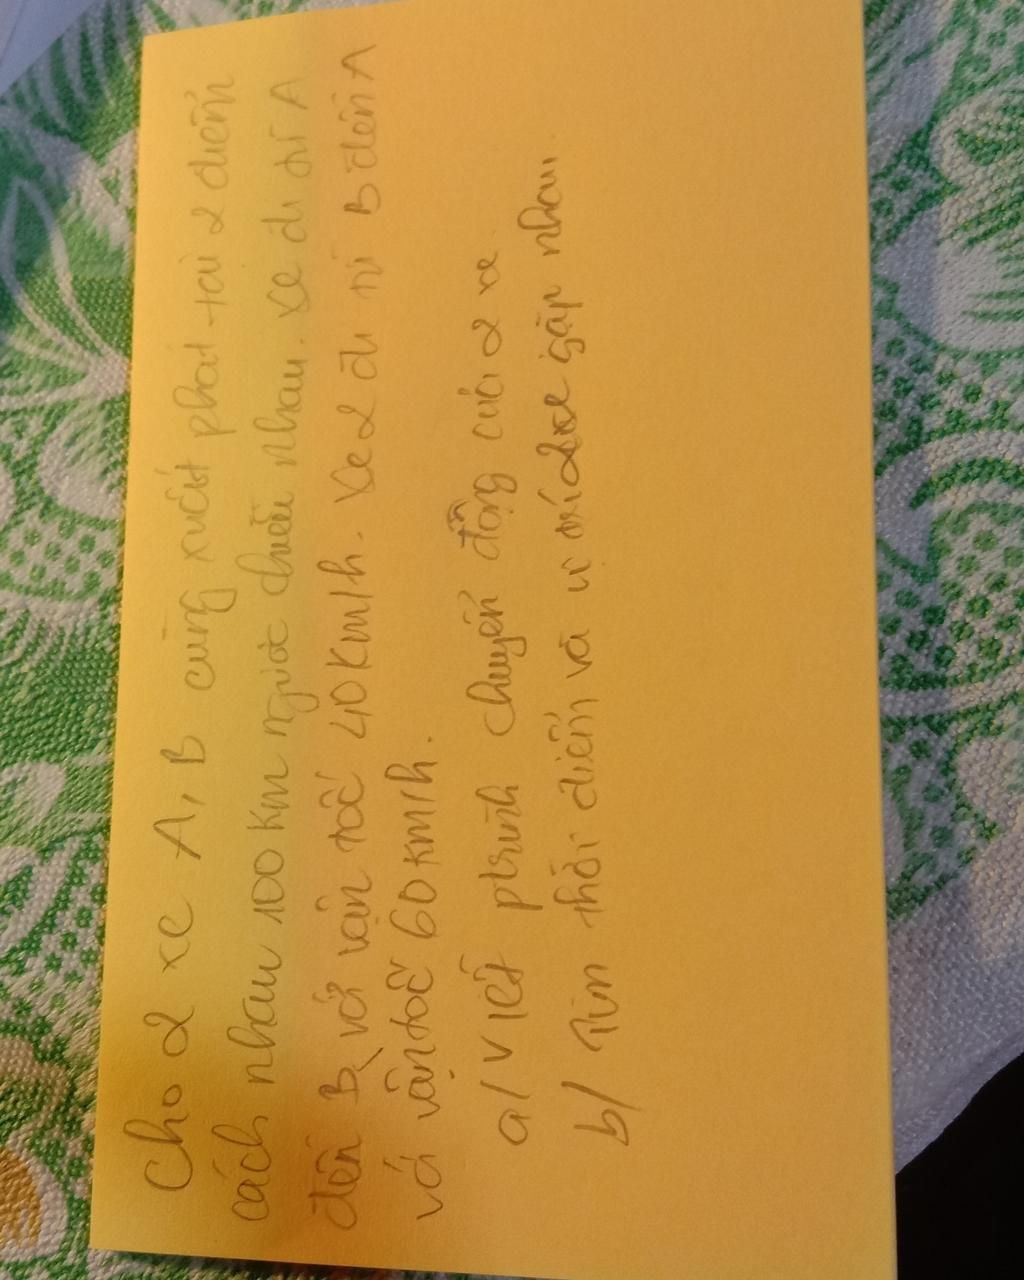 Cho 2 xe A, B cùng xuất phát tại 2 điểm
cách nhau 100 km ngược chiều nhau. Xe đi từ A
đến B với vận tốc 40 km/h. Xe 2 đi từ B đến A
với vận tốc 60 km/h.
a/ Viết ptrình chuyển động của 2 xe.
b/ Tìm thời điểm và vị trí 2 xe gặp nhau.